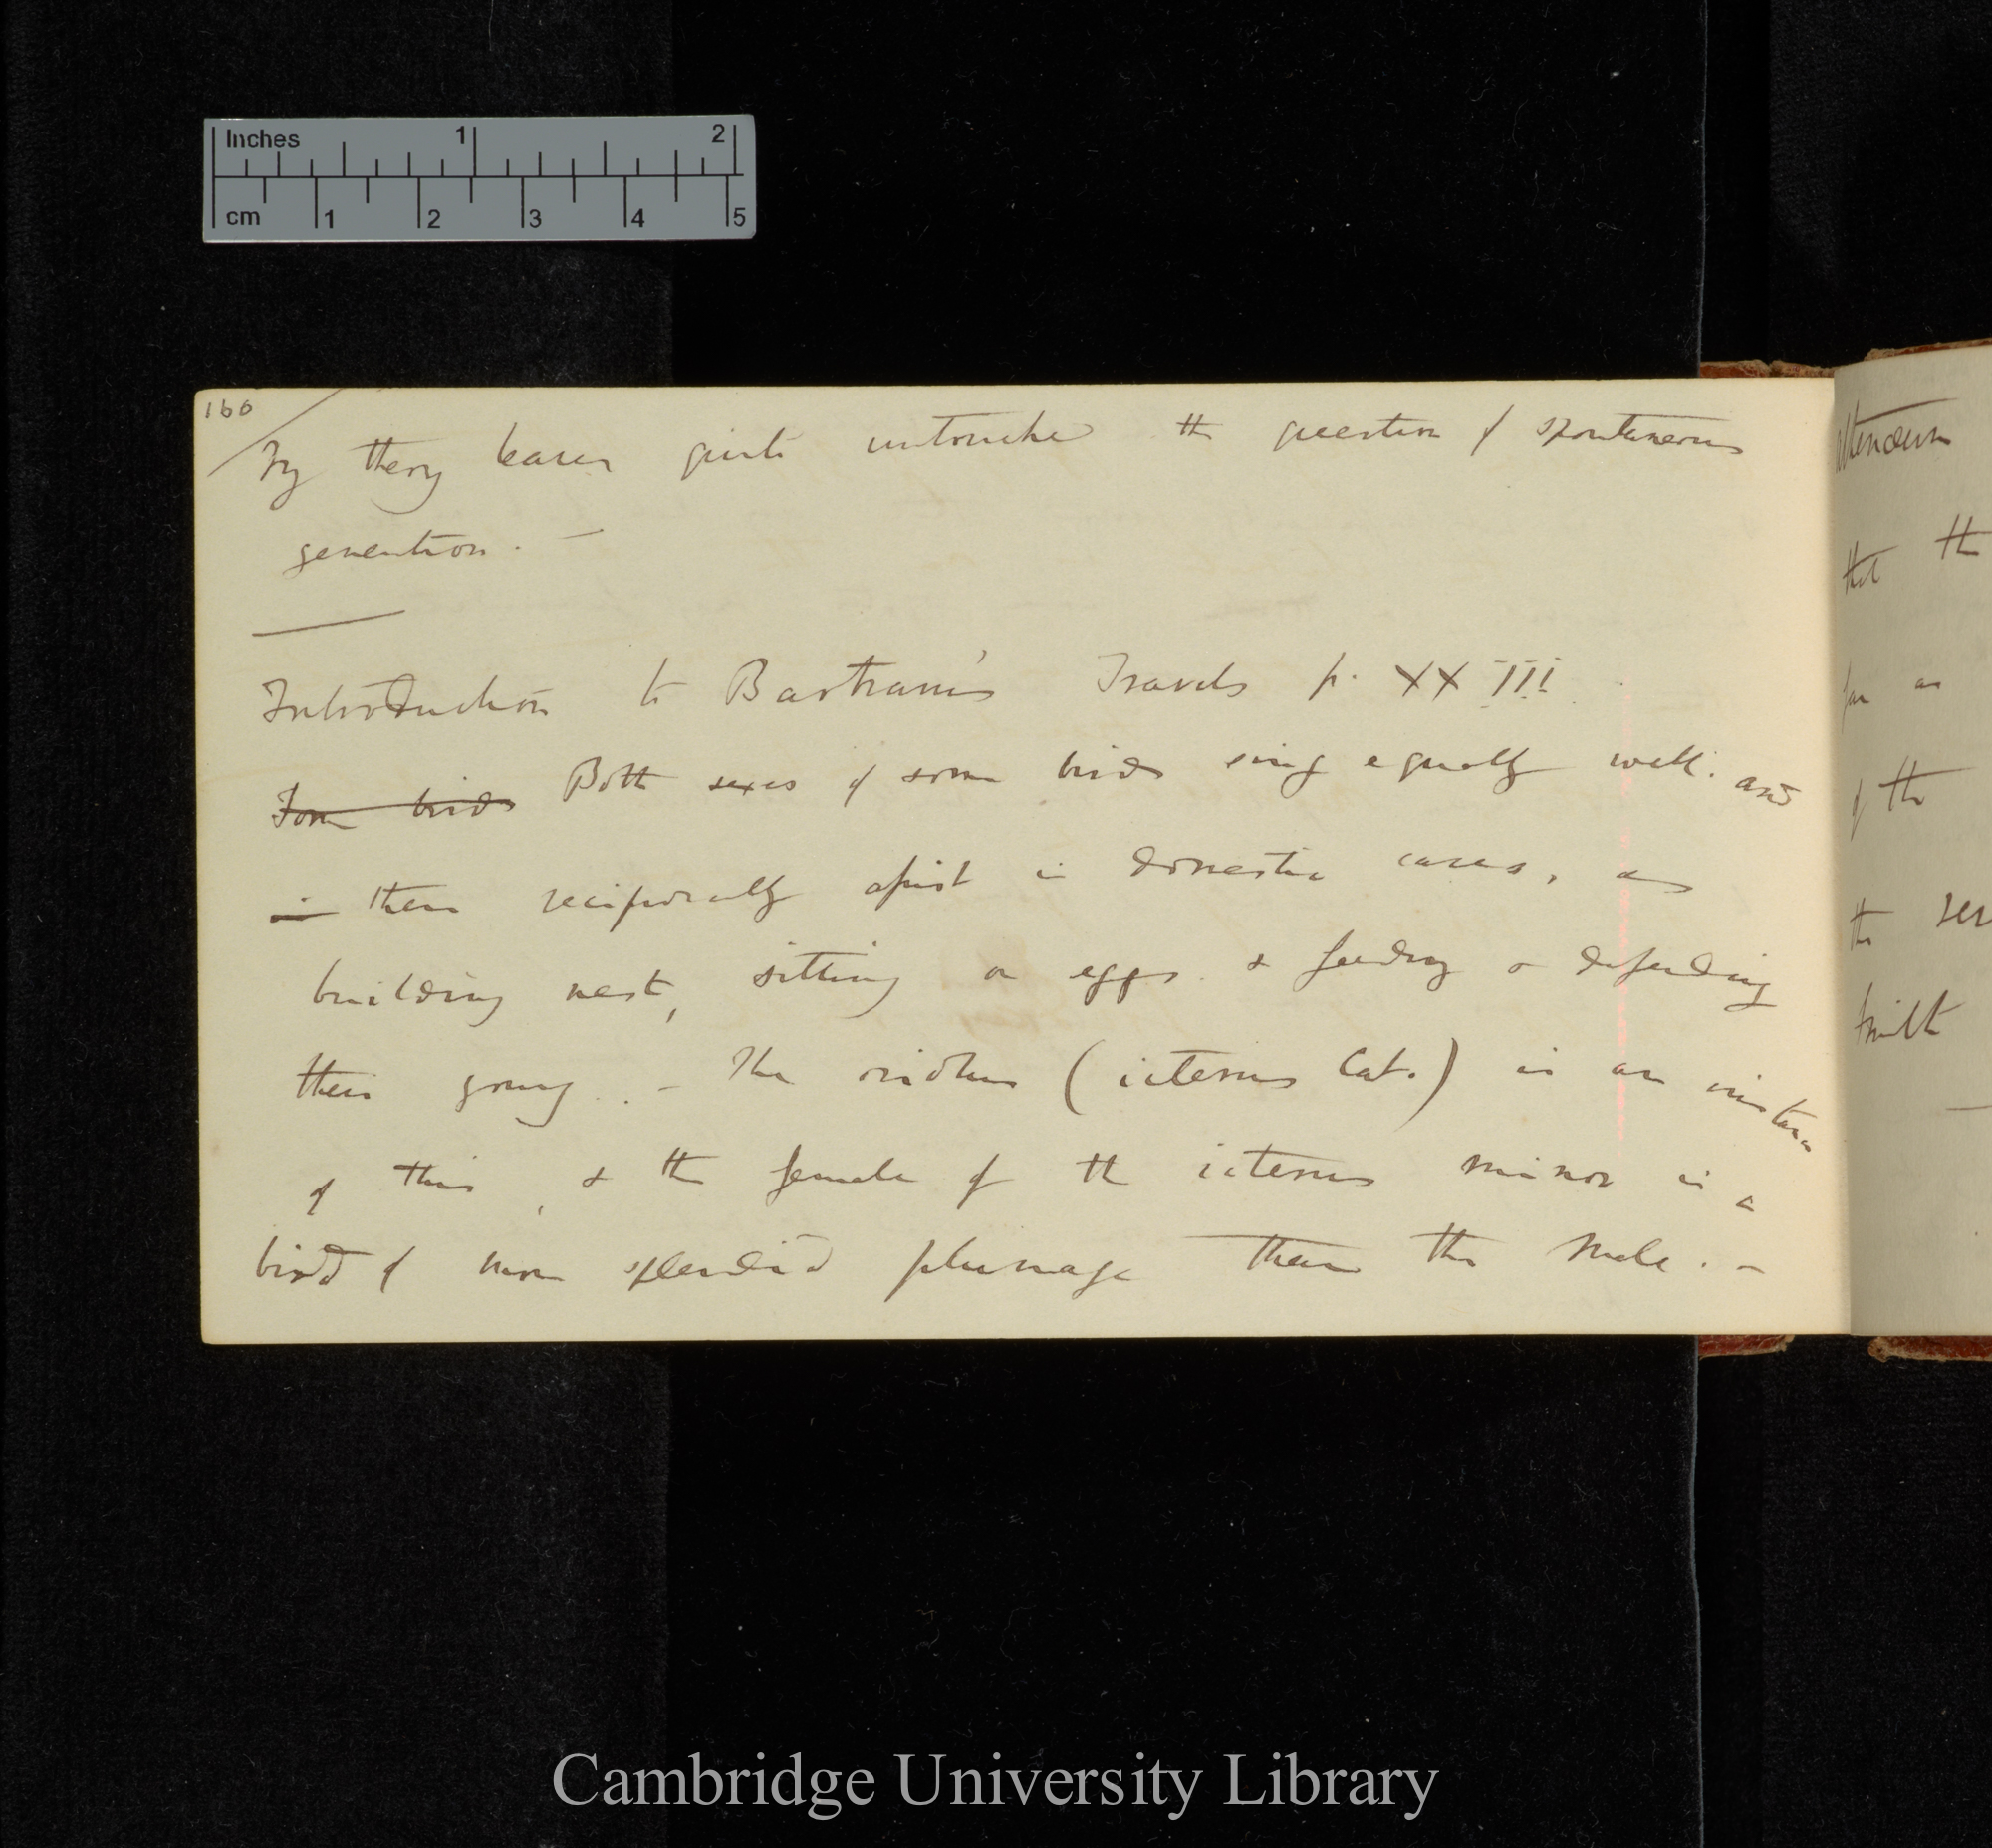 Inches 1 2
cm 1 2 3 4 5
160
My theory leaves quite untouched the question of spontaneous
generation. —
Introduction to Bartram's Travels p. XXIII.
Some birds Both sexes of some birds sing equally well. and
in then reciprocally assist in domestic cares, as
building nest, sitting on eggs. & feeding & defending
their young. — The oriolus (icterus Cat.) is an instance
of this, & the female of the icterus minor is a
bird of more splendid plumage than the male. —
that the
far as
of the
the
Cambridge University Library